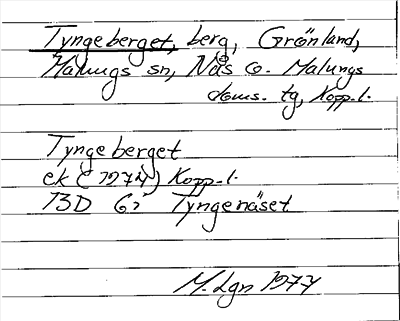 Tyngeberget, berg, Grönland,
Malungs sn, Nås o. Malungs
doms. tg, Kopp. l.
Tyngeberget
ek (1974) Kopp. l.
13D Tyngenäset
M. Lgn 1977